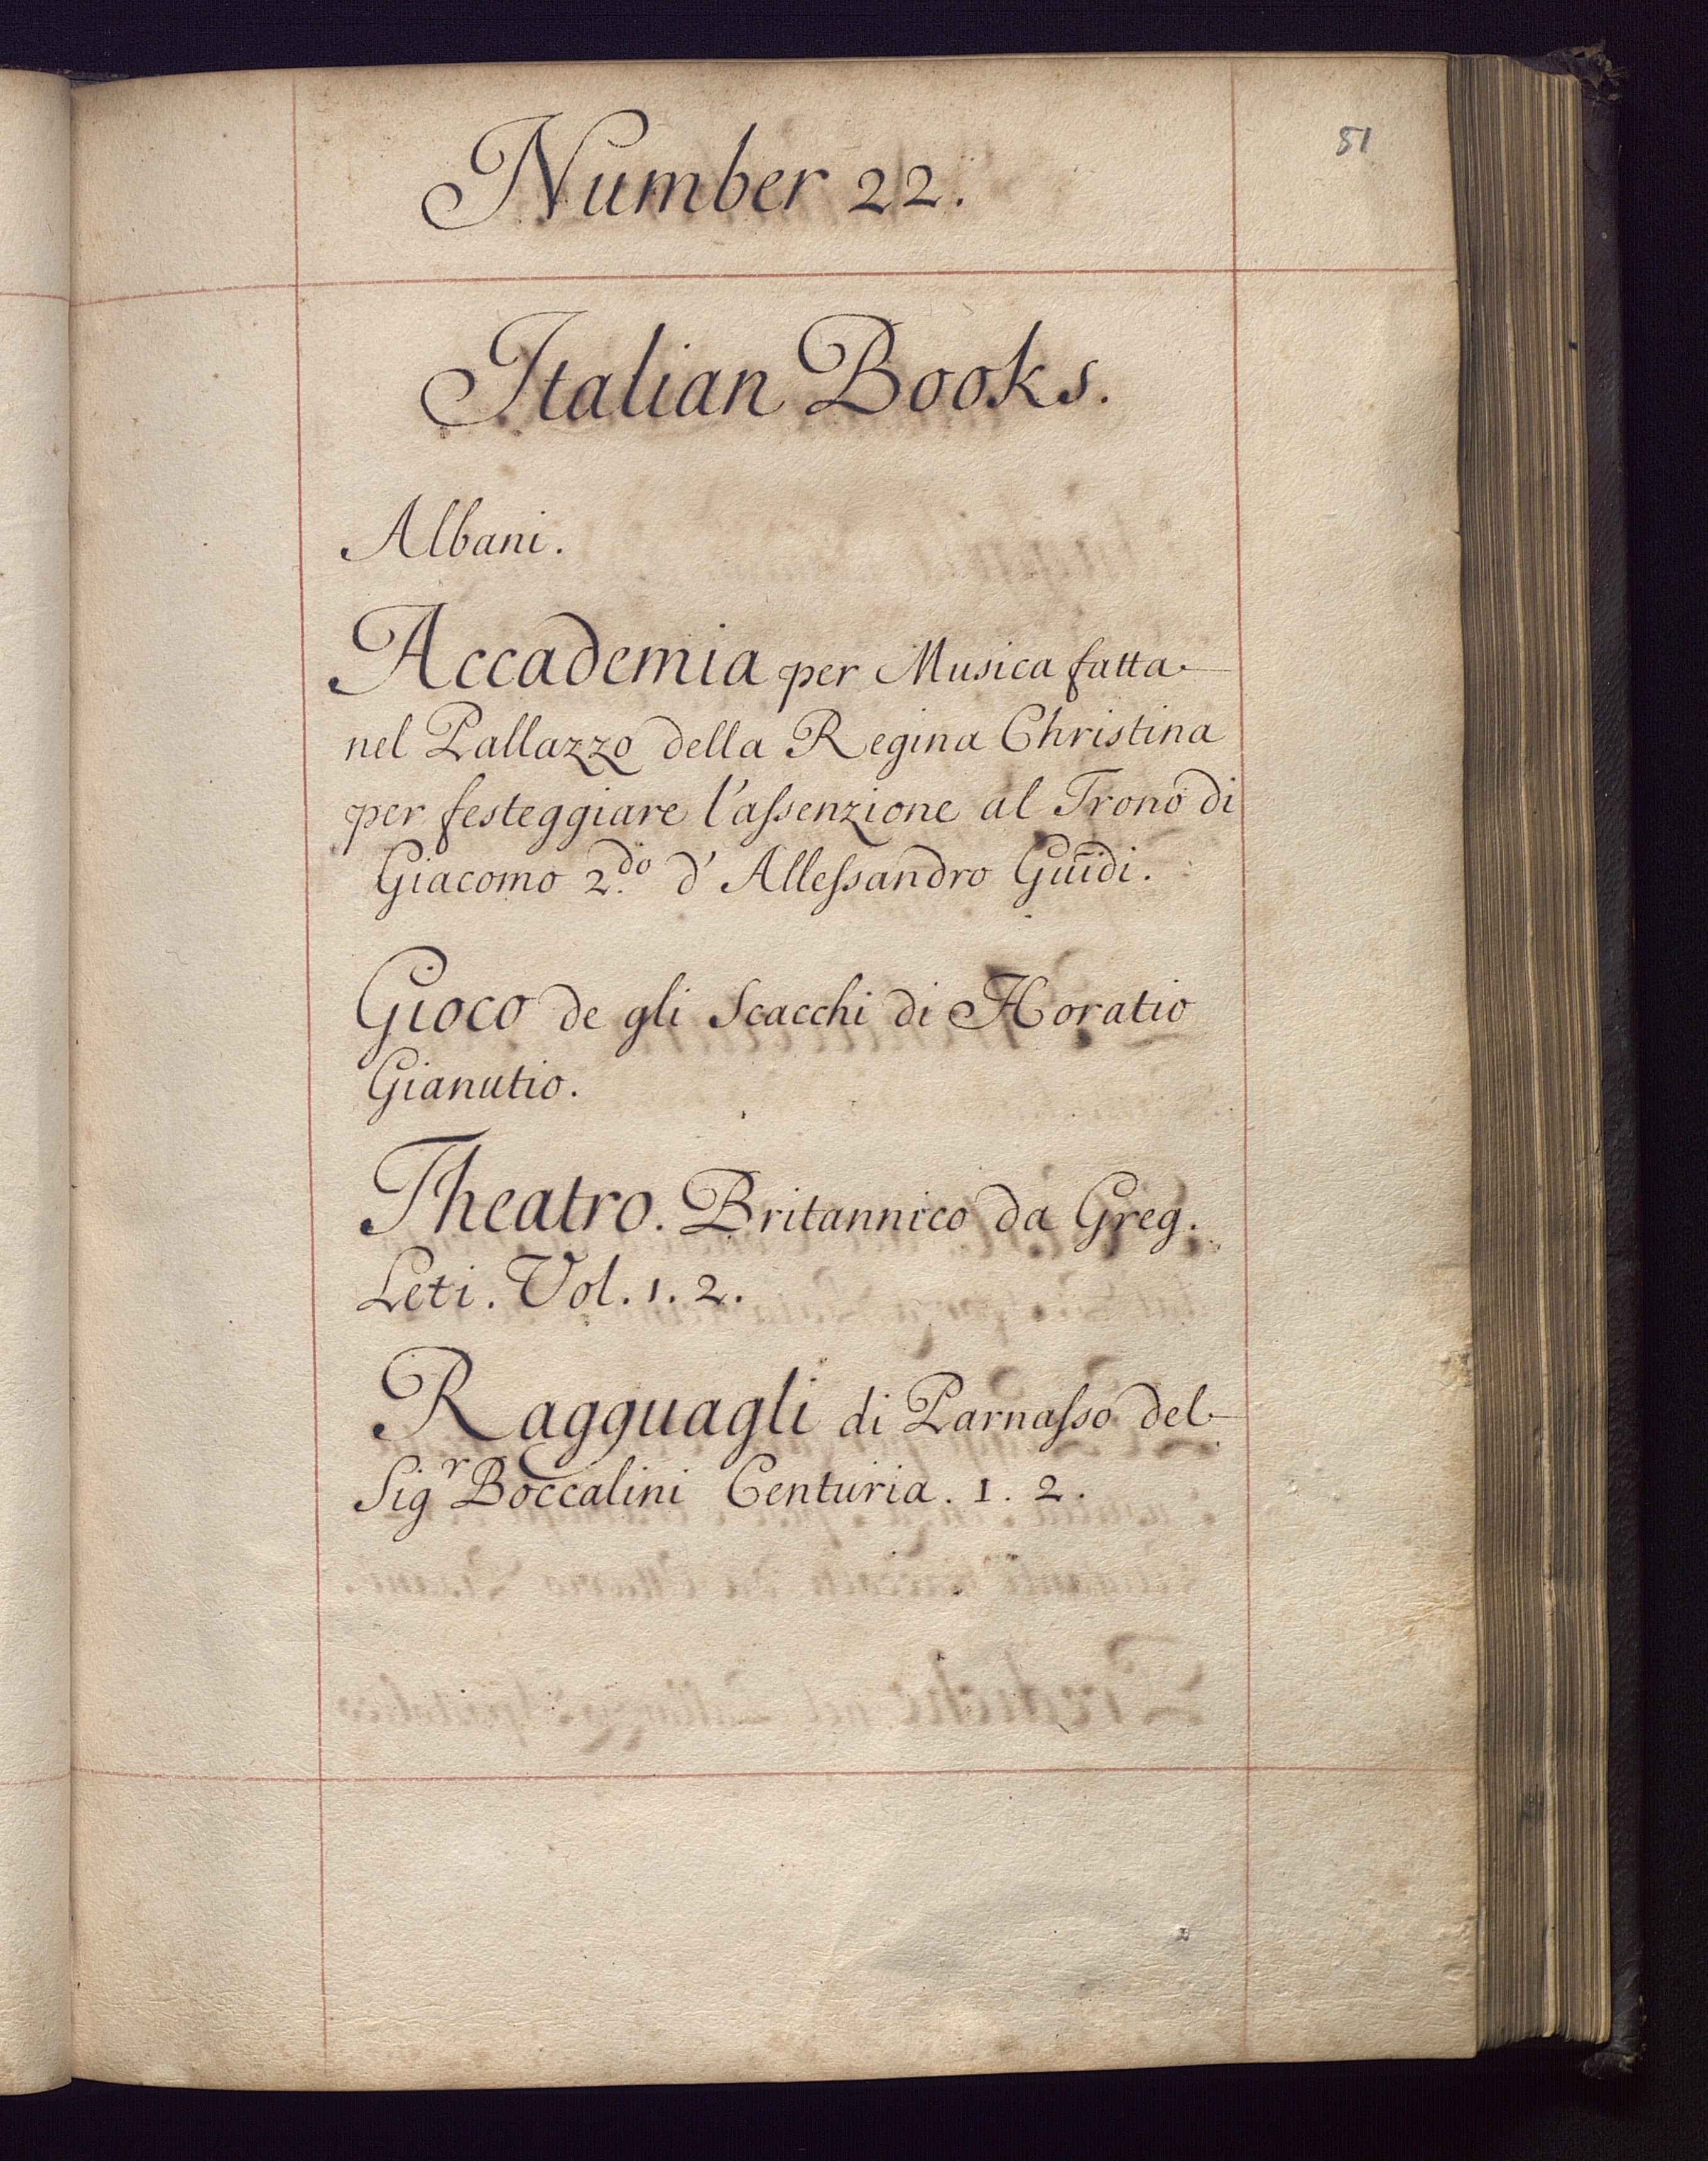 51
Number 22.
Italian Books.
Albani.
Accademia per Musica fatta
nel Pallazzo della Regina Christina
per festeggiare l'aſsenzione al Trono di
Giacomo 2.do d' Alleſsandro Guidi.
Gioco de gli Scacchi di Horatio
Gianutio.
Theatro. Britannico da Greg.
Leti. Vol. 1. 2.
Ragguagli di Parnaſso del
Sigr Boccalini Centuria. 1. 2.